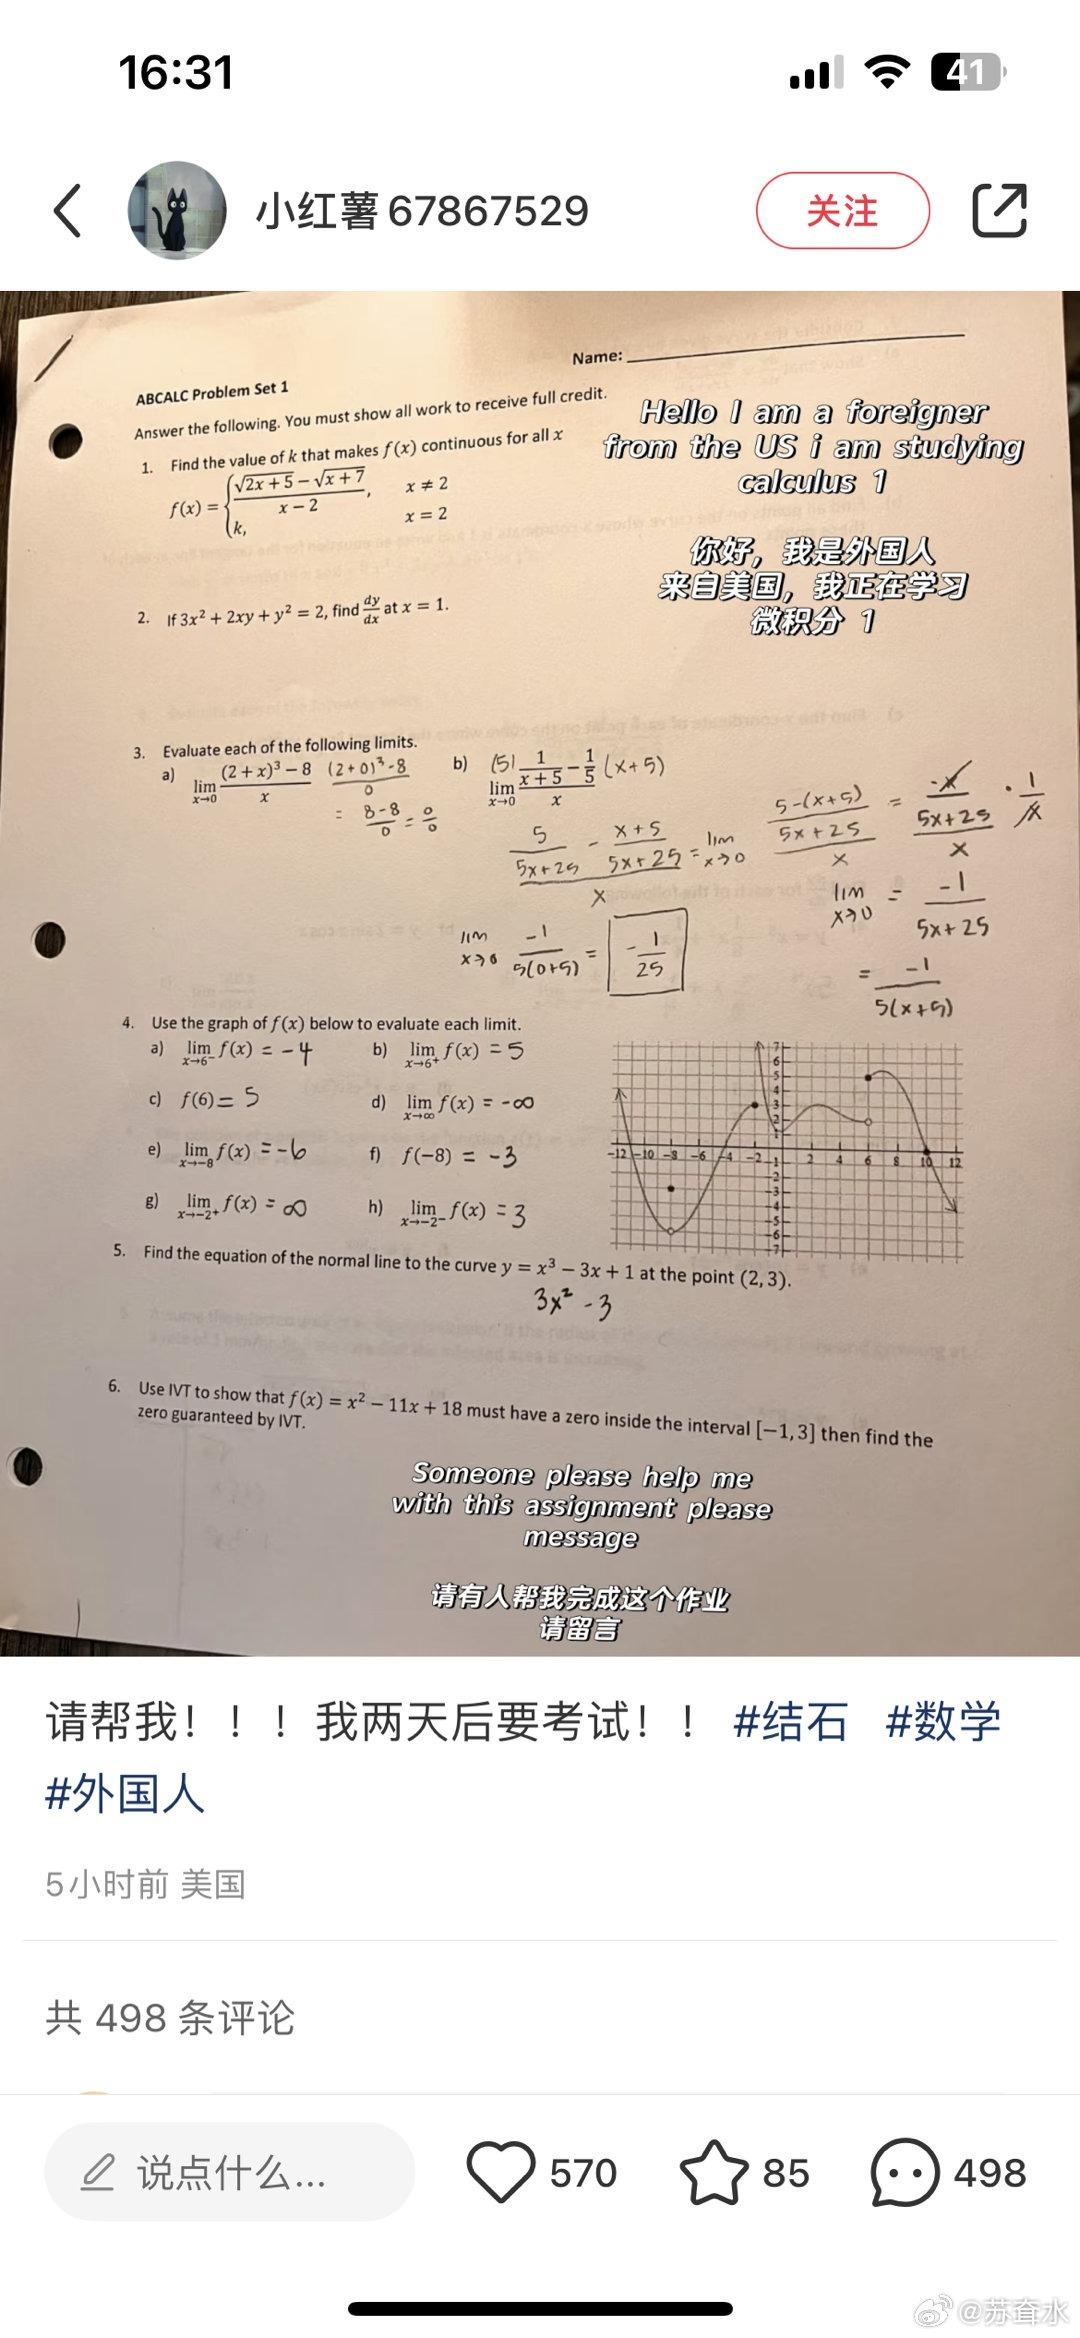 16:31
41
小红薯67867529
关注
Name:
ABCALC Problem Set 1
Answer the following. You must show all work to receive full credit.
Hello I am a foreigner
from the US i am studying
calculus 1
你好，我是外国人
来自美国，我正在学习
微积分 1
1. Find the value of k that makes f(x) continuous for all x
f(x) = { (√2x + 5 − √x + 7)/(x − 2), x ≠ 2
k, x = 2
2. If 3x² + 2xy + y² = 2, find dy/dx at x = 1.
3. Evaluate each of the following limits.
a) lim x→0 ((2 + x)³ − 8)/x (2+0)³-8/0
= 8-8/0 = 0/0
b) lim x→0 (5) (1/(x + 5) − 1/5)/x (x+5)
(5/(5x+25) - (x+5)/(5x+25))/x = lim x→0 ((5-(x+5))/(5x+25))/x = (-x/(5x+25))/x · 1/x
lim x→0 = -1/(5x+25)
lim x→0 -1/(5(0+5)) = -1/25
= -1/(5(x+5))
4. Use the graph of f(x) below to evaluate each limit.
a) lim x→6⁻ f(x) = -4
b) lim x→6⁺ f(x) = 5
c) f(6) = 5
d) lim x→∞ f(x) = -∞
e) lim x→−8 f(x) = -6
f) f(−8) = -3
g) lim x→−2⁺ f(x) = ∞
h) lim x→−2⁻ f(x) = 3
7
6
5
4
3
2
1
-12 -10 -8 -6 -4 -2 2 4 6 8 10 12
-1
-2
-3
-4
-5
-6
-7
5. Find the equation of the normal line to the curve y = x³ − 3x + 1 at the point (2,3).
3x² - 3
6. Use IVT to show that f(x) = x² − 11x + 18 must have a zero inside the interval [−1,3] then find the
zero guaranteed by IVT.
Someone please help me
with this assignment please
message
请有人帮我完成这个作业
请留言
请帮我！！！我两天后要考试！！ #结石 #数学
#外国人
5小时前 美国
共 498 条评论
说点什么...
570
85
498
@苏耷水